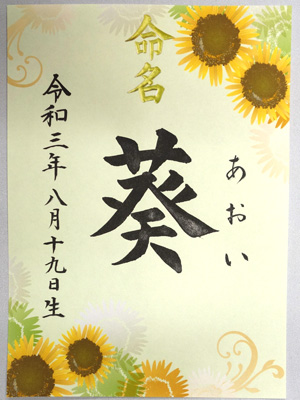 命名
あおい
葵
令和三年八月十九日生